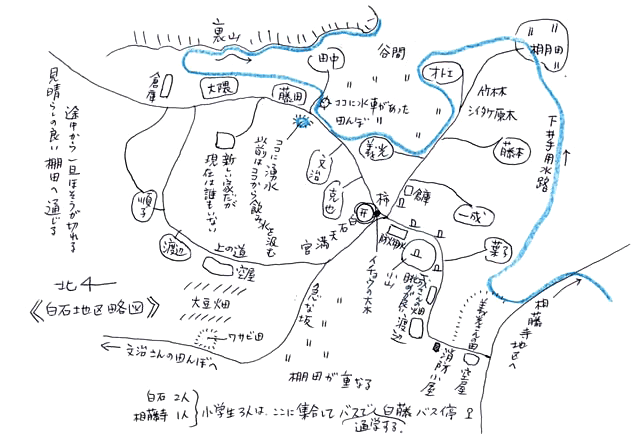 裏山
谷間
棚田
田中
オトエ
竹林
シイタケ原木
下井手用水路
倉庫
大隈
藤田
ココに水車があった
田んぼ
見晴らしの良い棚田へ通じる
途中から一旦ほそうが切れる
新しい家だが
現在は誰もいない
ココに湧水
以前はココから飲み水を汲む
文治
義光
藤本
克也
柿
倉庫
一成
順子
渡辺
上の道
空屋
天石白
宮満
井
イチョウの大木
小山
葉子
北
《白石地区略図》
大豆畑
急な坂
ワサビ田
文治さんの田んぼへ
棚田が重なる
消防小屋
空屋
相藤寺地区へ
白石 2人
相藤寺 1人
小学生3人は、ここに集合して バスで人白藤 バス停
通学する。